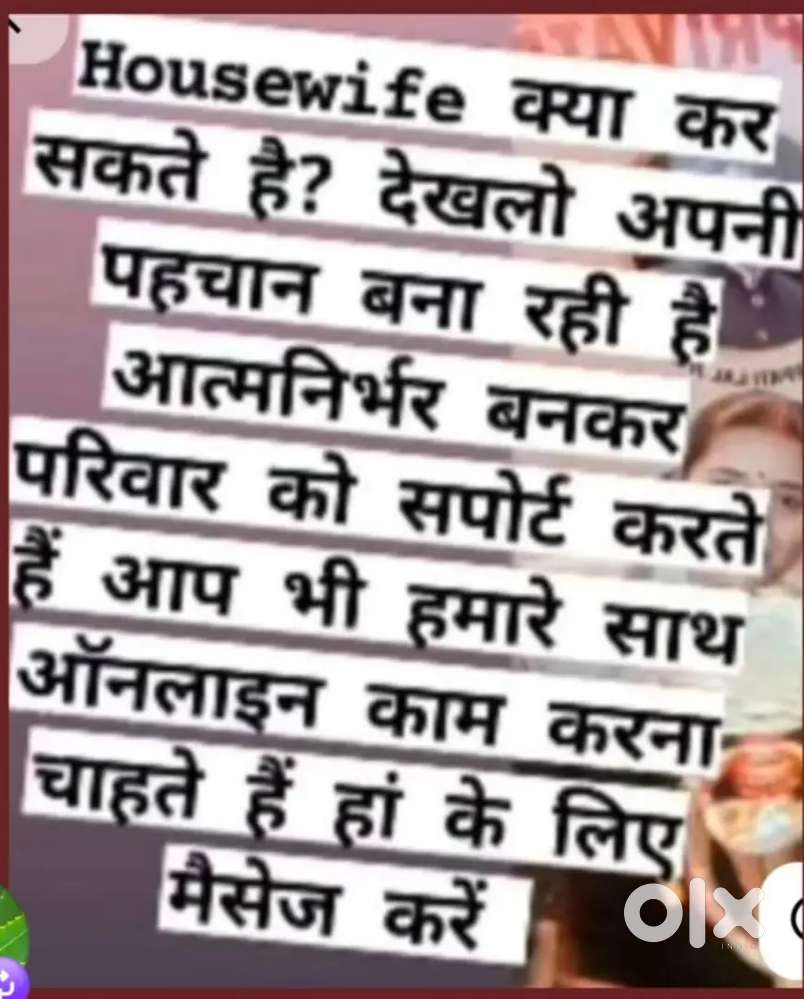 Housewife क्या कर
सकते है? देखलो अपनी
पहचान बना रही है
आत्मनिर्भर बनकर
परिवार को सपोर्ट करते
हैं आप भी हमारे साथ
ऑनलाइन काम करना
चाहते हैं हां के लिए
मैसेज करें
olx